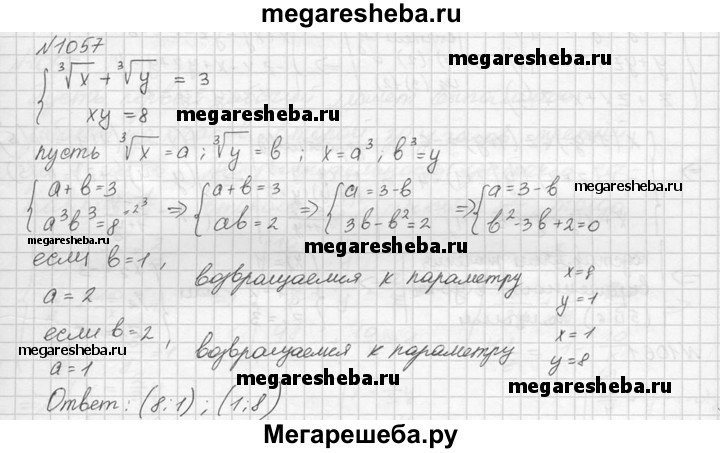 megaresheba.ru
№1057
{ ∛x + ∛y = 3
xy = 8 megaresheba.ru megaresheba.ru
пусть ∛x = a ; ∛y = b ; x = a³ ; b³ = y
{ a+b=3 ⇒ { a+b=3 ⇒ { a=3-b ⇒ { a=3-b megaresheba.ru
a³b³=8=2³ ab=2 3b-b²=2 b²-3b+2=0
megaresheba.ru megaresheba.ru
если b=1, возвращаемся к параметру x=8
a=2 y=1
если b=2, возвращаемся к параметру x=1
megaresheba.ru
a=1 y=8
megaresheba.ru megaresheba.ru
Ответ: (8;1) ; (1;8)
Мегарешеба.ру